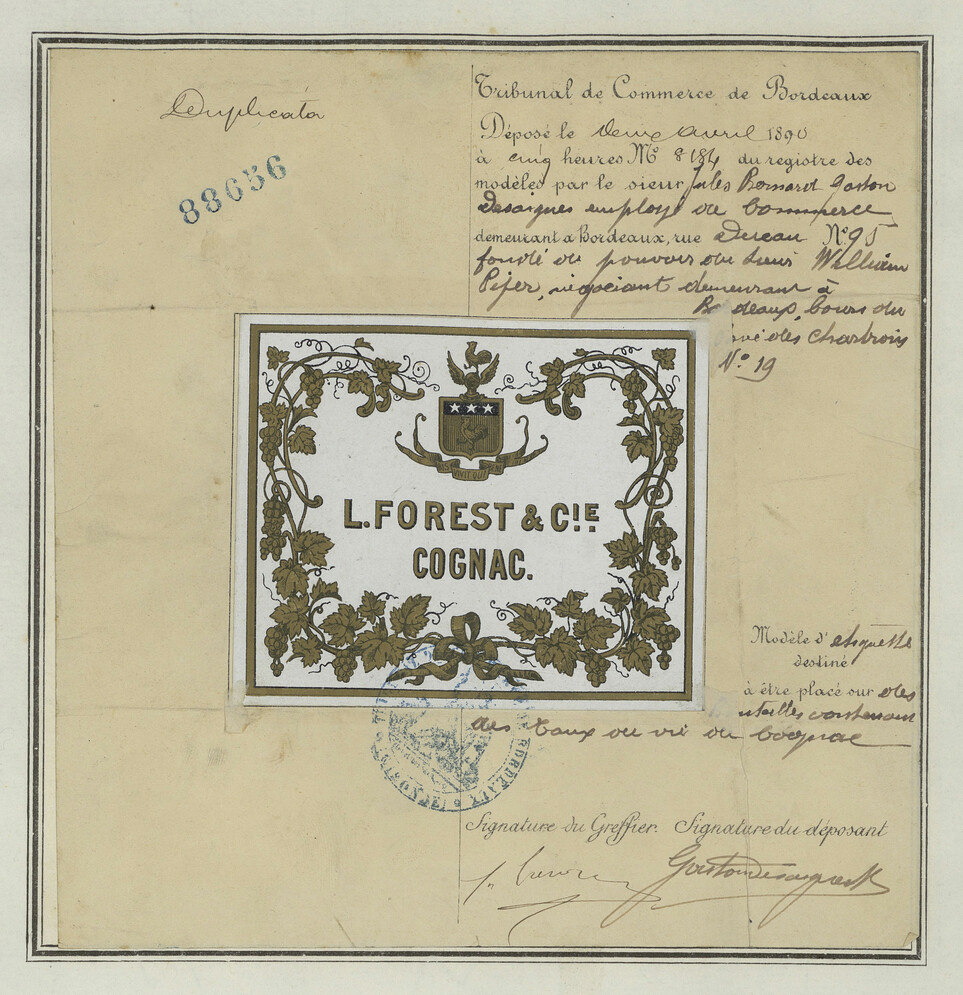 Duplicata
88656
Tribunal de Commerce de Bordeaux
Déposé le deux avril 1890
à cinq heures No 8184 du registre des
modèles par le sieur Jules Bernard Gaston
Desaigues employé de Commerce
demeurant a Bordeaux, rue No 95
fondé de pouvoirs du sieur William
Pifer, négociant demeurant à
Bordeaux, Cours du
des Chartrons
No 19
L. FOREST & CIE
COGNAC.
Modèle d'étiquette
destiné
à être placé sur des
bouteilles contenant
des Eaux de vie de Cognac
BORDEAUX
Signature du Greffier. Signature du déposant